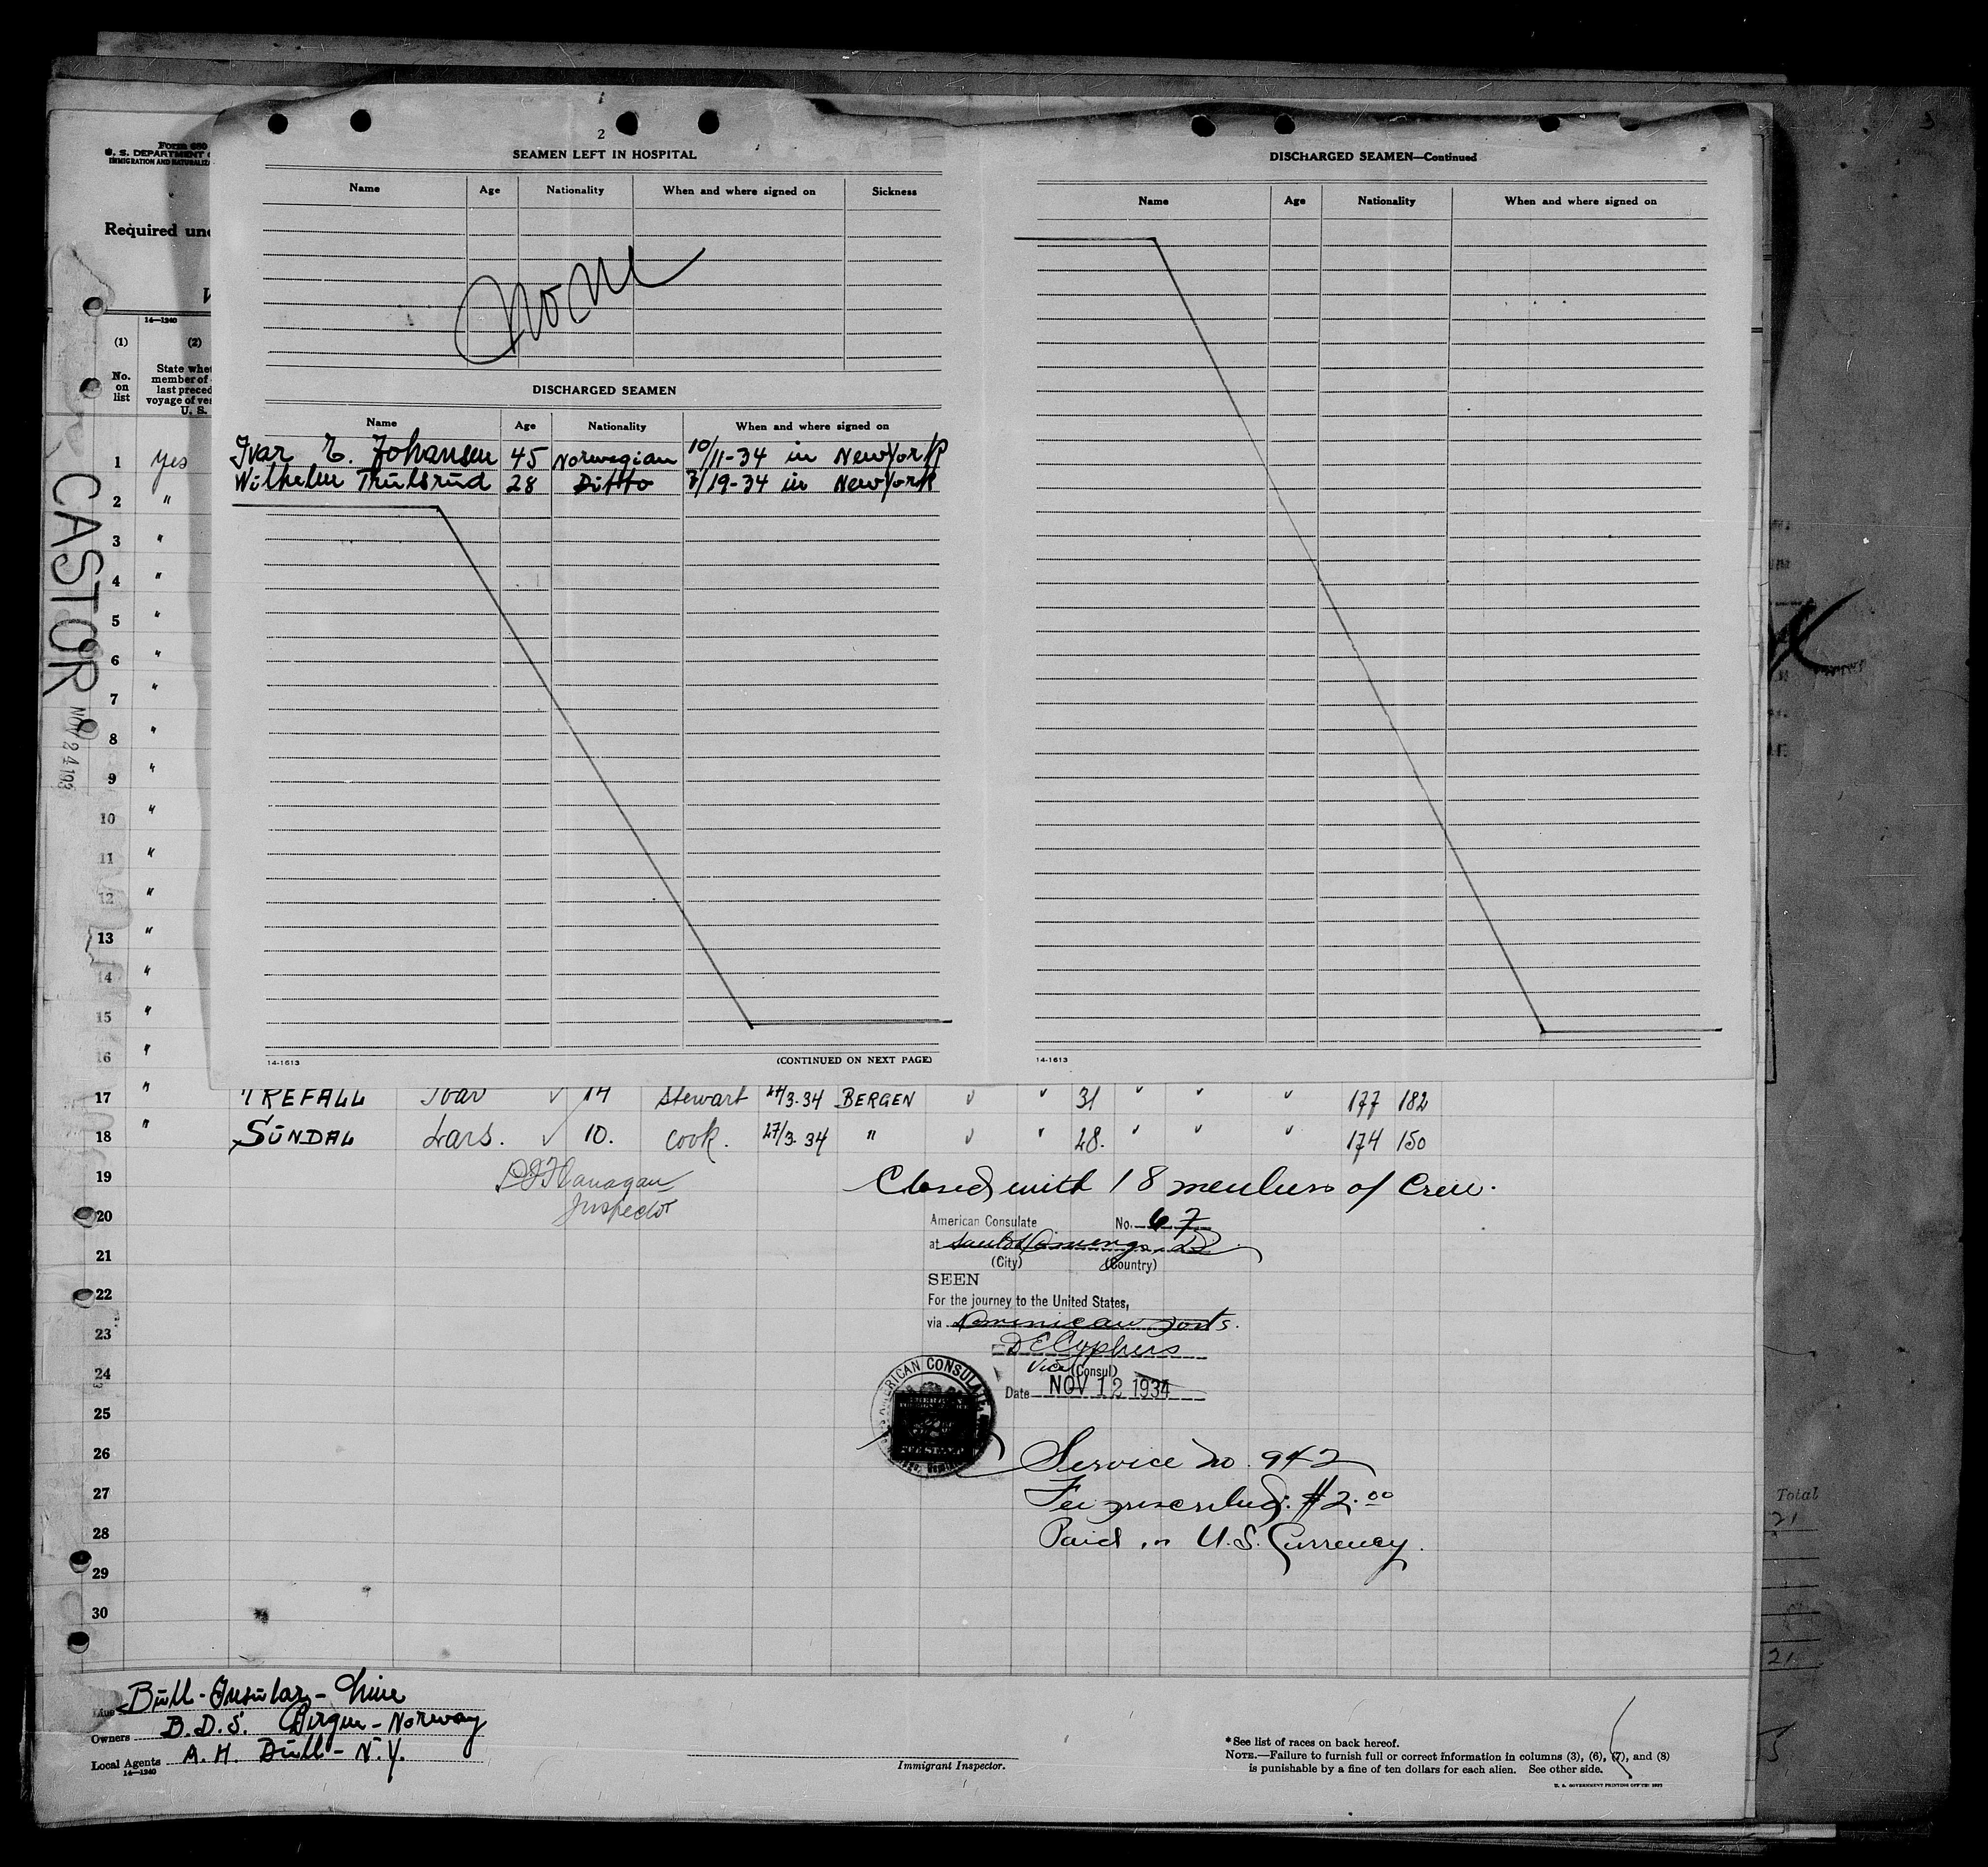 2
SEAMEN LEFT IN HOSPITAL
Name Age Nationality When and where signed on Sickness
None
DISCHARGED SEAMEN
Name Age Nationality When and where signed on
Ivar E. Johansen 45 Norwegian 10/11-34 in New York
Wilhelm Trulsrud 28 Ditto 3/19-34 in New York
14-1613 (CONTINUED ON NEXT PAGE)
DISCHARGED SEAMEN—Continued
Name Age Nationality When and where signed on
14-1613
Form 680
U. S. DEPARTMENT
IMMIGRATION AND
Required
14—1240
(1) (2)
No. on list
State
member of
last
voyage of
U. S.
CASTOR
NOV 24 193
1 Yes
2 "
3 "
4 "
5 "
6 "
7 "
8 "
9 "
10 "
11 "
12 "
13 "
14 "
15 "
16 "
17 " TREFALL Ivar ✓ 14 Stewart 24/3-34 BERGEN " " 31 " " " 177 182
18 " SUNDAL Lars. ✓ 10. Cook. 27/3-34 " " " 28. " " " 174 150
19
20
21
22
23
24
25
26
27
28
29
30
Flanagan
Inspector
Closed with 18 members of Crew.
American Consulate No. 67
at Santo Domingo, D.R.
(City) (Country)
SEEN
For the journey to the United States,
via Dominican ports.
Vice (Consul)
Date NOV 12 1934
AMERICAN CONSULATE
Service no. 942
Fee prescribed: $2.00
Paid in U.S. Currency.
Line Bull-Insular-Line
Owners B.D.S. Bergen-Norway
Local Agents A. H. Bull-N.Y.
14—1240
Immigrant Inspector.
* See list of races on back hereof.
NOTE.—Failure to furnish full or correct information in columns (3), (6), (7), and (8)
is punishable by a fine of ten dollars for each alien. See other side.
U. S. GOVERNMENT PRINTING OFFICE
Total
21
21